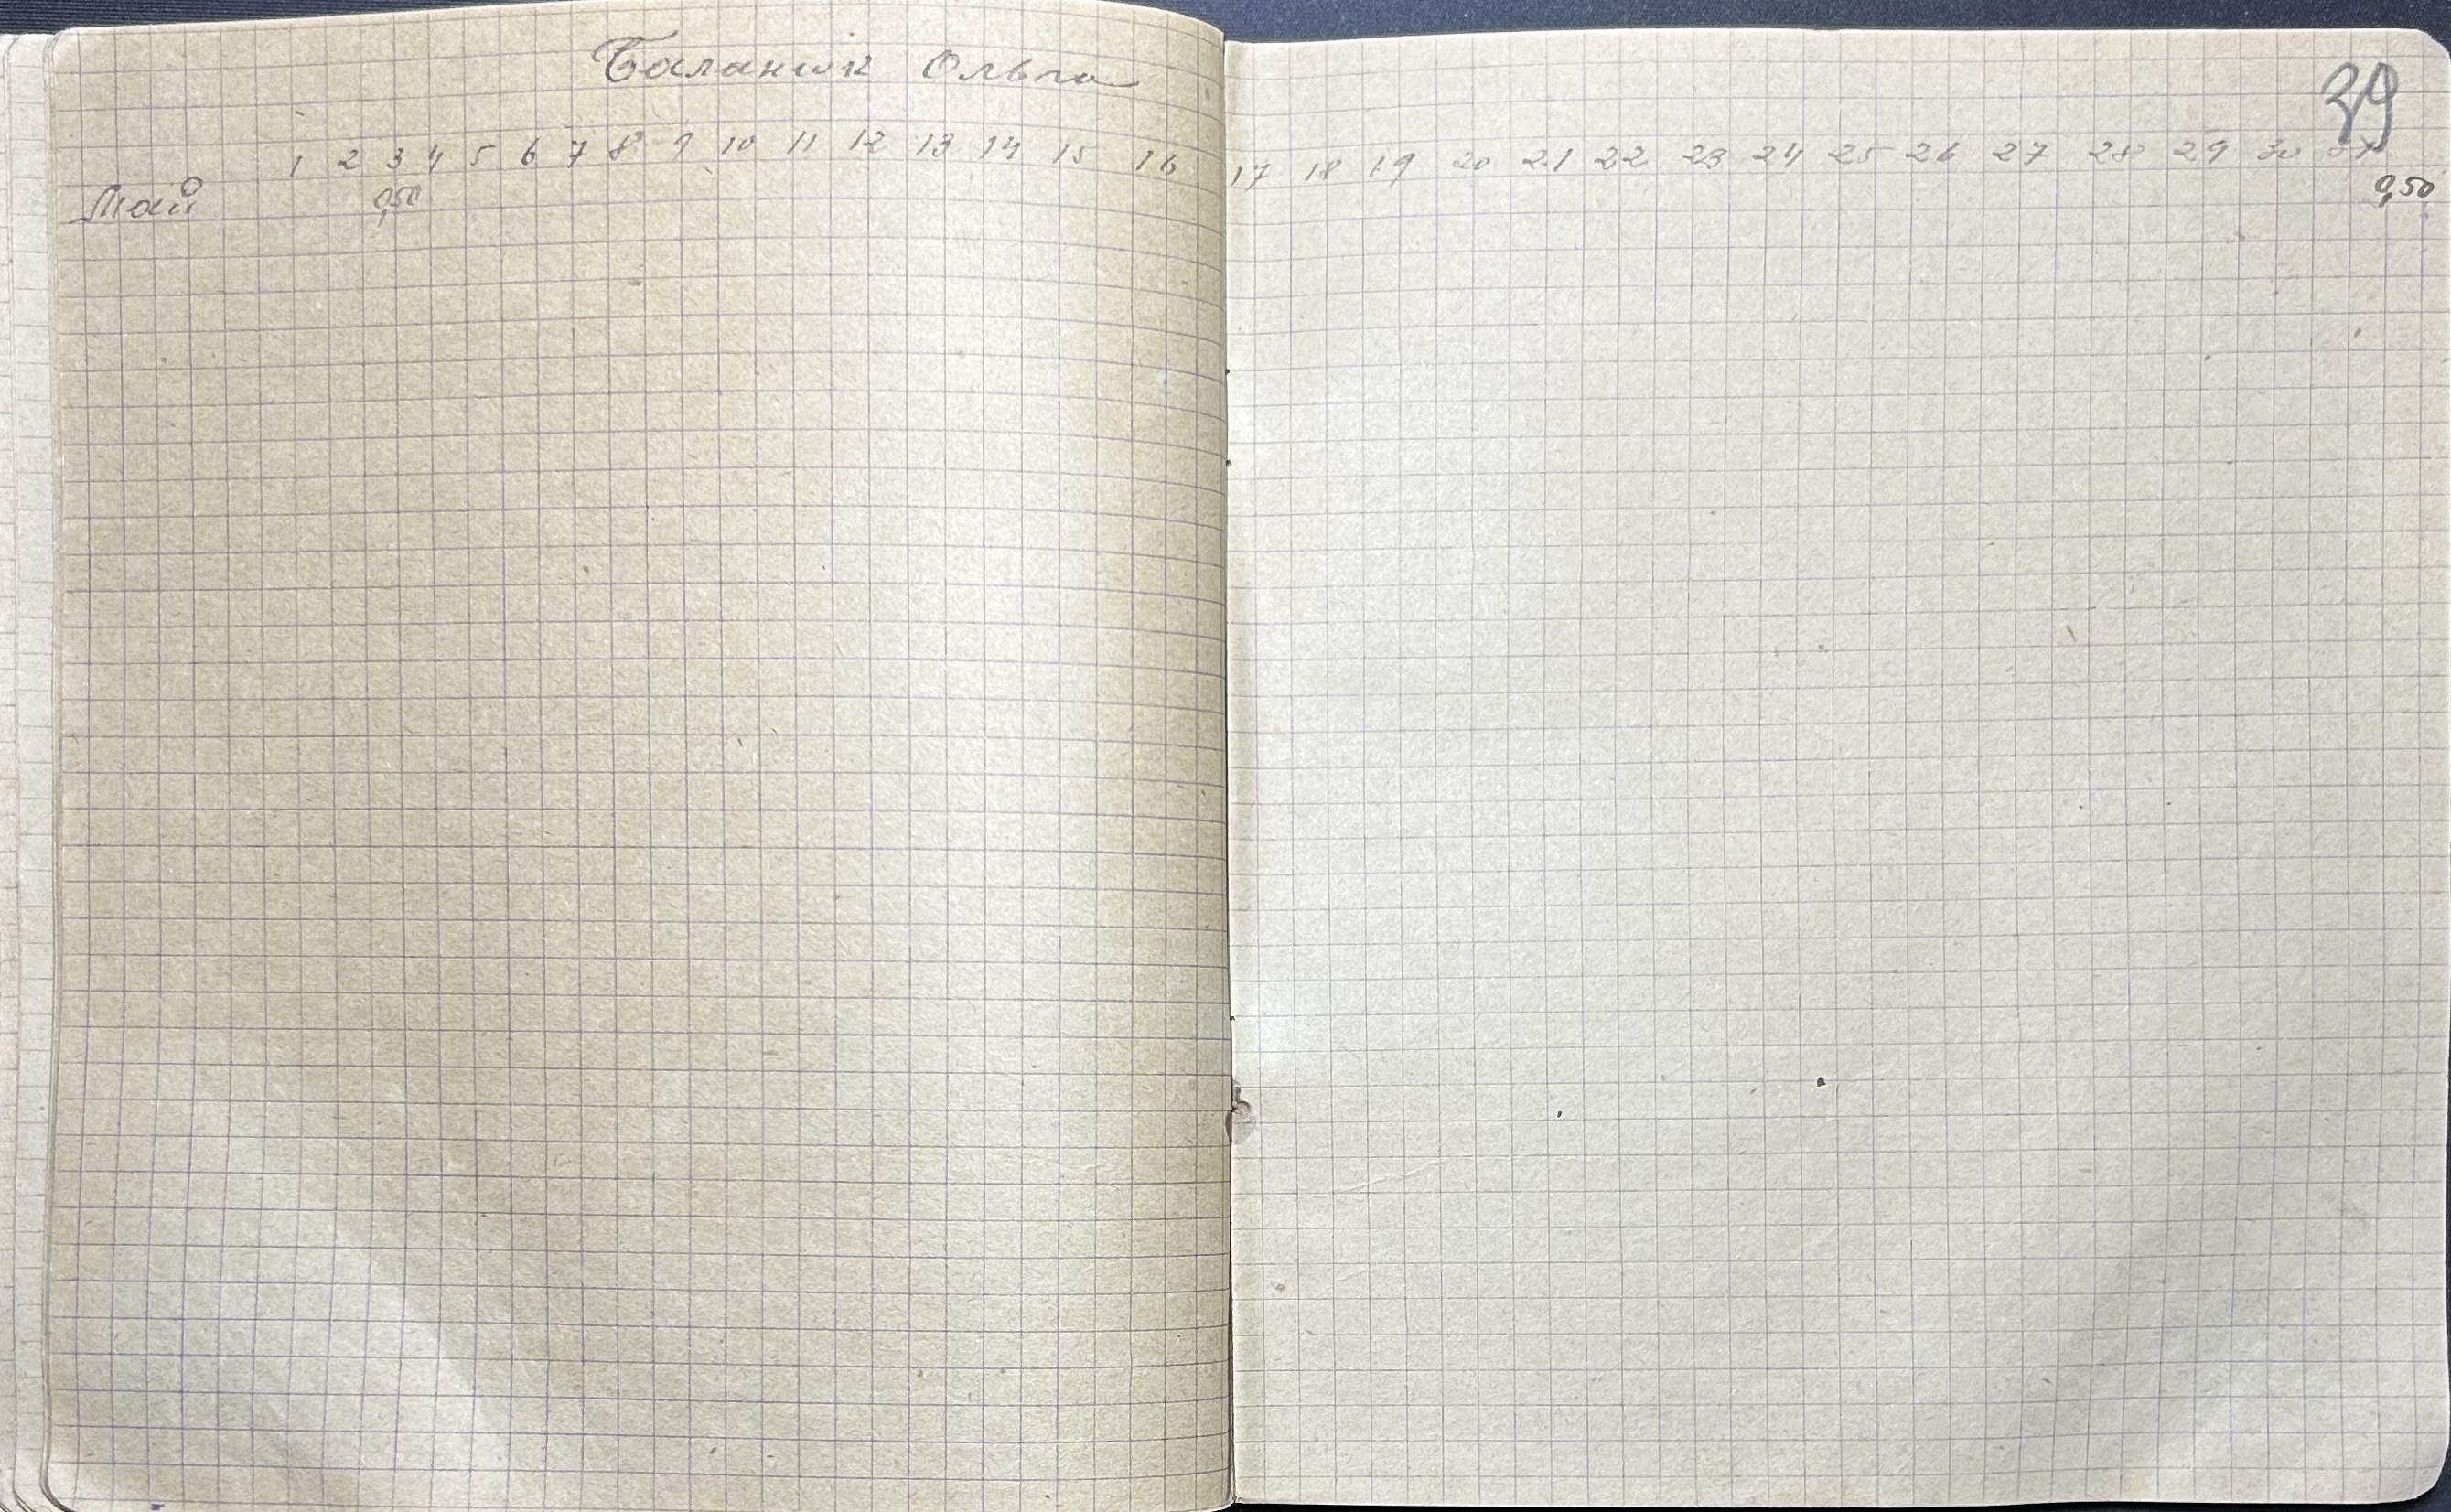 Баланюк Ольга
39
1 2 3 4 5 6 7 8 9 10 11 12 13 14 15 16 17 18 19 20 21 22 23 24 25 26 27 28 29 30 31
Май 0,50 0,50